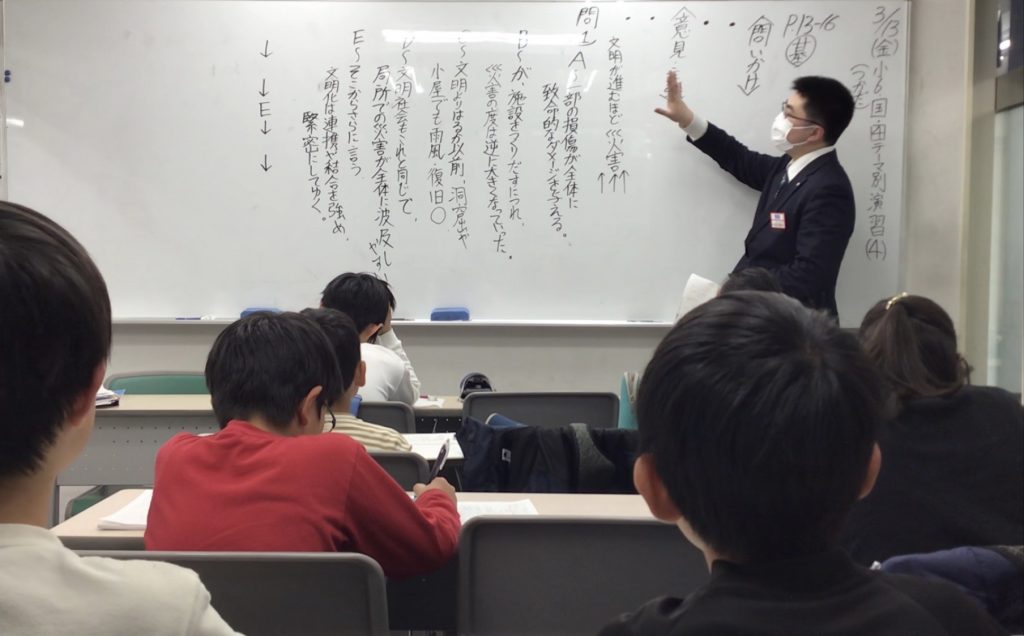 3/13(金)小6国・国テーマ別演習(4)
P.13-16 基
問いかけ
意見
問1
文明が進むほど〈災害〉↑↑↑
A〜一部の損傷が全体に
致命的なダメージを与える。
B〜が、施設をつくりだすにつれ、
〈災害の度は逆に大きくなっていった。
C〜文明よりはるか以前、洞窟や
小屋でも雨風・復旧〇
D〜文明社会もそれと同じで、
局所での災害が全体に波及しやすい
E〜そこからさらに言う
文明化は連携や結合を強め、
緊密にしてゆく。
↓ ↓E↓ ↓